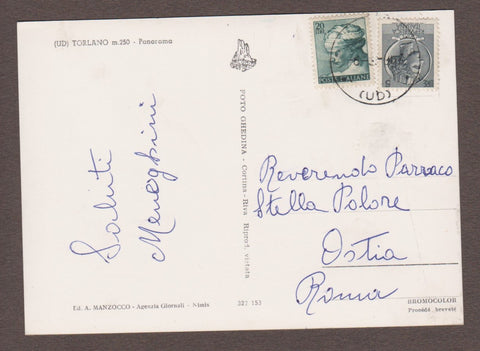 (UD) TORLANO m. 250 - Panorama
Saluti
Meneghini
Ed. A. MANZOCCO - Agenzia Giornali - Nimis
FOTO GHEDINA - Cortina - Riva Riprod. vietata
327 153
20
POSTE ITALIANE
(UD)
Reverendo Parraco
Stella Polare
Ostia
Roma
BROMOCOLOR
Procédé breveté